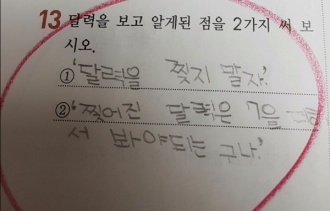 13 달력을 보고 알게된 점을 2가지 써 보
시오.
① '달력을 찢지 말자.'
② '찢어진 달력은 7을
서 봐야되는 구나.'